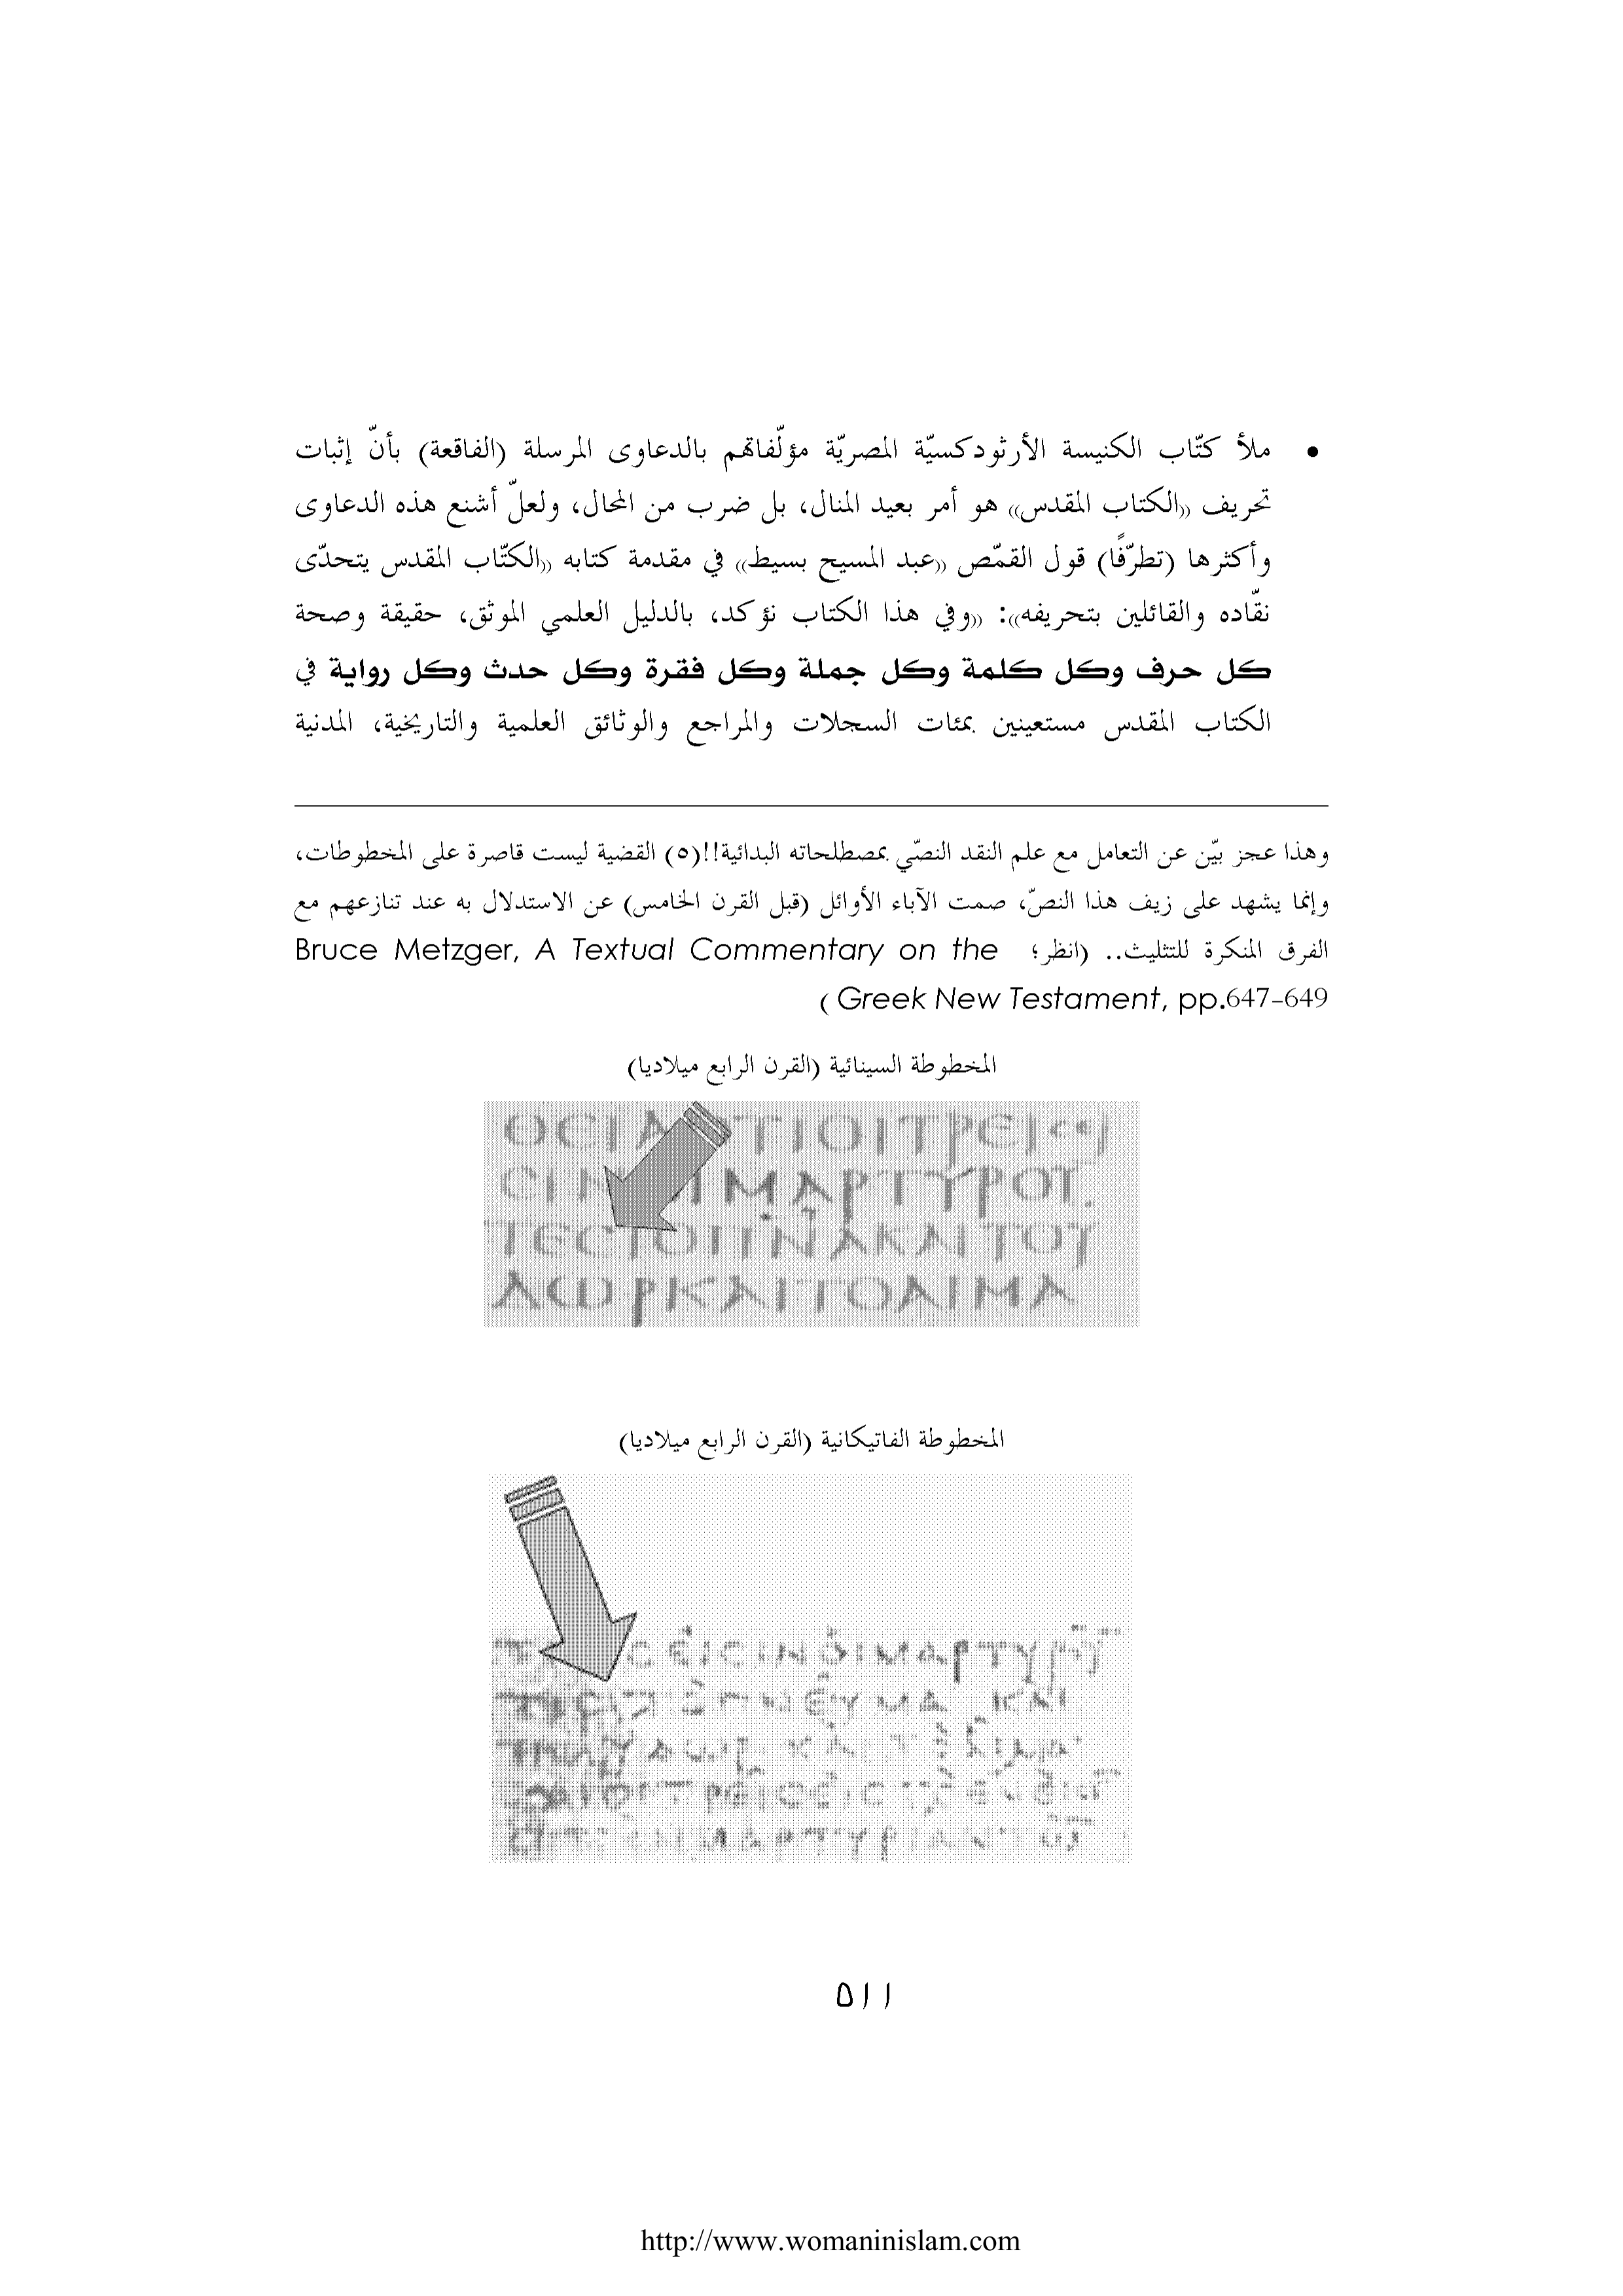 • ملأ كتّاب الكنيسة الأرثودكسيّة المصريّة مؤلّفاتهم بالدعاوى المرسلة (الفاقعة) بأنّ إثبات
تحريف «الكتاب المقدس» هو أمر بعيد المنال، بل ضرب من المحال، ولعلّ أشنع هذه الدعاوى
وأكثرها (تطرّفًا) قول القمّص «عبد المسيح بسيط» في مقدمة كتابه «الكتّاب المقدس يتحدّى
نقّاده والقائلين بتحريفه»: «وفي هذا الكتاب نؤكد، بالدليل العلمي الموثق، حقيقة وصحة
كل حرف وكل كلمة وكل جملة وكل فقرة وكل حدث وكل رواية في
الكتاب المقدس مستعينين بمئات السجلات والمراجع والوثائق العلمية والتاريخية، المدنية
وهذا عجز بيّن عن التعامل مع علم النقد النصّي بمصطلحاته البدائية!!(٥) القضية ليست قاصرة على المخطوطات،
وإنما يشهد على زيف هذا النصّ، صمت الآباء الأوائل (قبل القرن الخامس) عن الاستدلال به عند تنازعهم مع
الفرق المنكرة للتثليث.. (انظر؛ Bruce Metzger, A Textual Commentary on the
Greek New Testament, pp.647-649 )
المخطوطة السينائية (القرن الرابع ميلاديا)
ΘΕΙΑ ΤΙΟΙΤΡΕΙC
CΙΝ ΙΜΑΡΤΥΡΟΥ
ΤΕCΤΟΠΝΑΚΑΙΤΟΥ
ΔΩΡΚΑΙΤΟΑΙΜΑ
المخطوطة الفاتيكانية (القرن الرابع ميلاديا)
CΕΙCΙΝΟΙΜΑΡΤΥΡΟΥ
ΠΝΕΥΜΑ ΚΑΙ
ΜΑΡΤΥΡΙΑΝ
٥١١
http://www.womaninislam.com